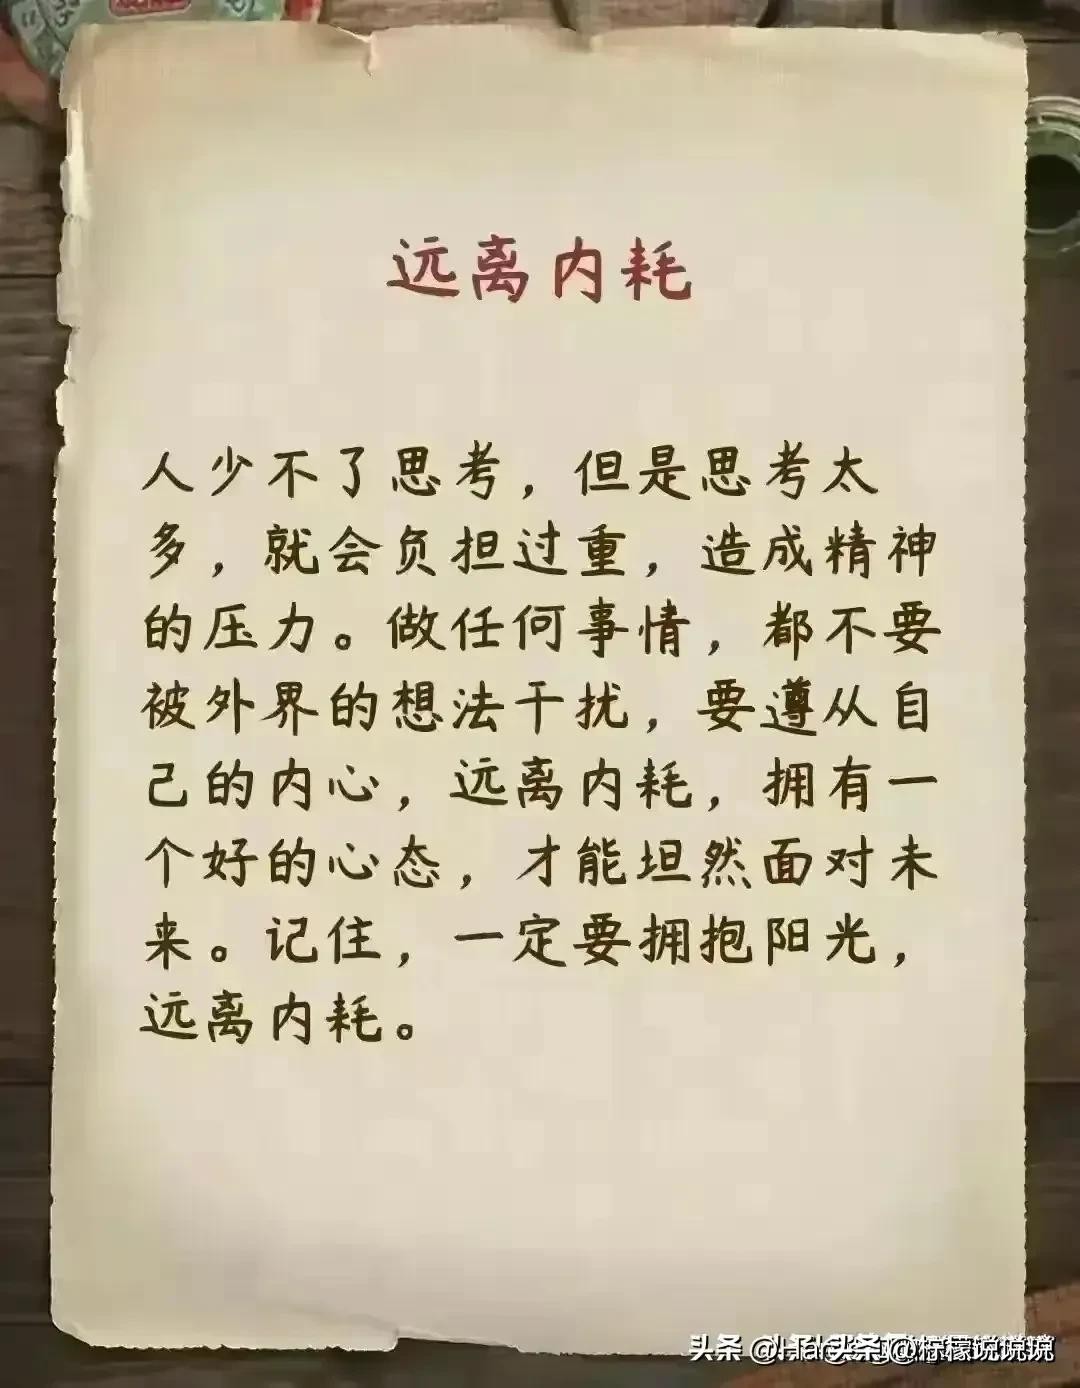 远离内耗
人少不了思考，但是思考太
多，就会负担过重，造成精神
的压力。做任何事情，都不要
被外界的想法干扰，要遵从自
己的内心，远离内耗，拥有一
个好的心态，才能坦然面对未
来。记住，一定要拥抱阳光，
远离内耗。
头条